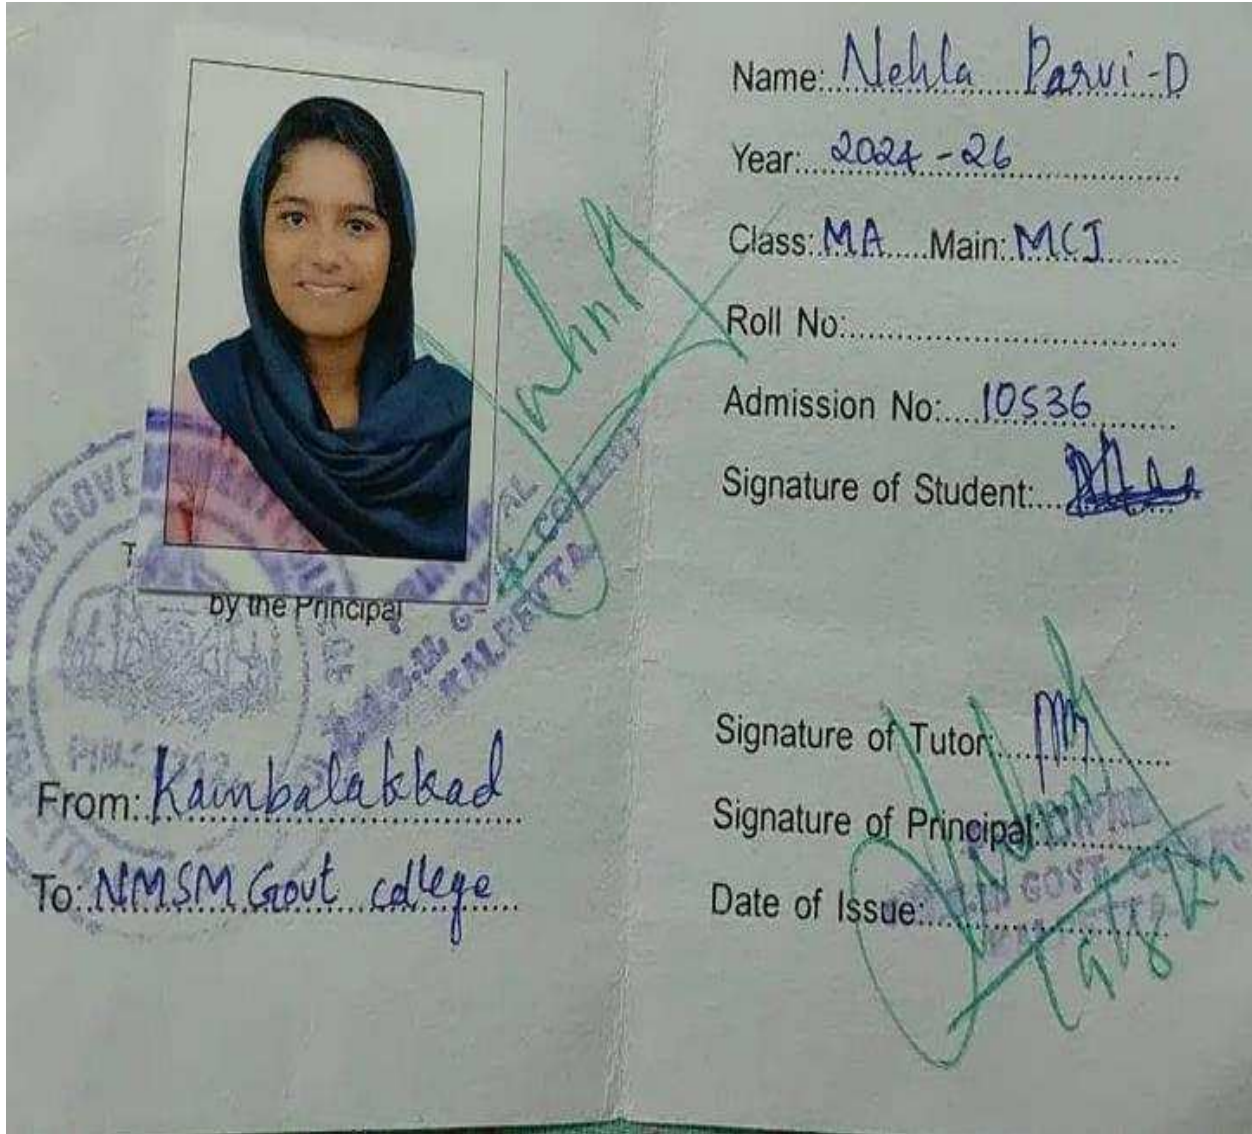 by the Principal
From: Kambalakkad
To: NMSM Govt college
PRINCIPAL
N.M.S.M. GOVT. COLLEGE
KALPETTA
Name: Nehla Parvi-D
Year: 2024-26
Class: MA Main: MCJ
Roll No:
Admission No: 10536
Signature of Student:
Signature of Tutor:
Signature of Principal:
Date of Issue: